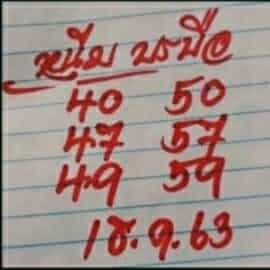 หนึ่ม บรบือ
40 50
47 57
49 59
1ธ.ค.63